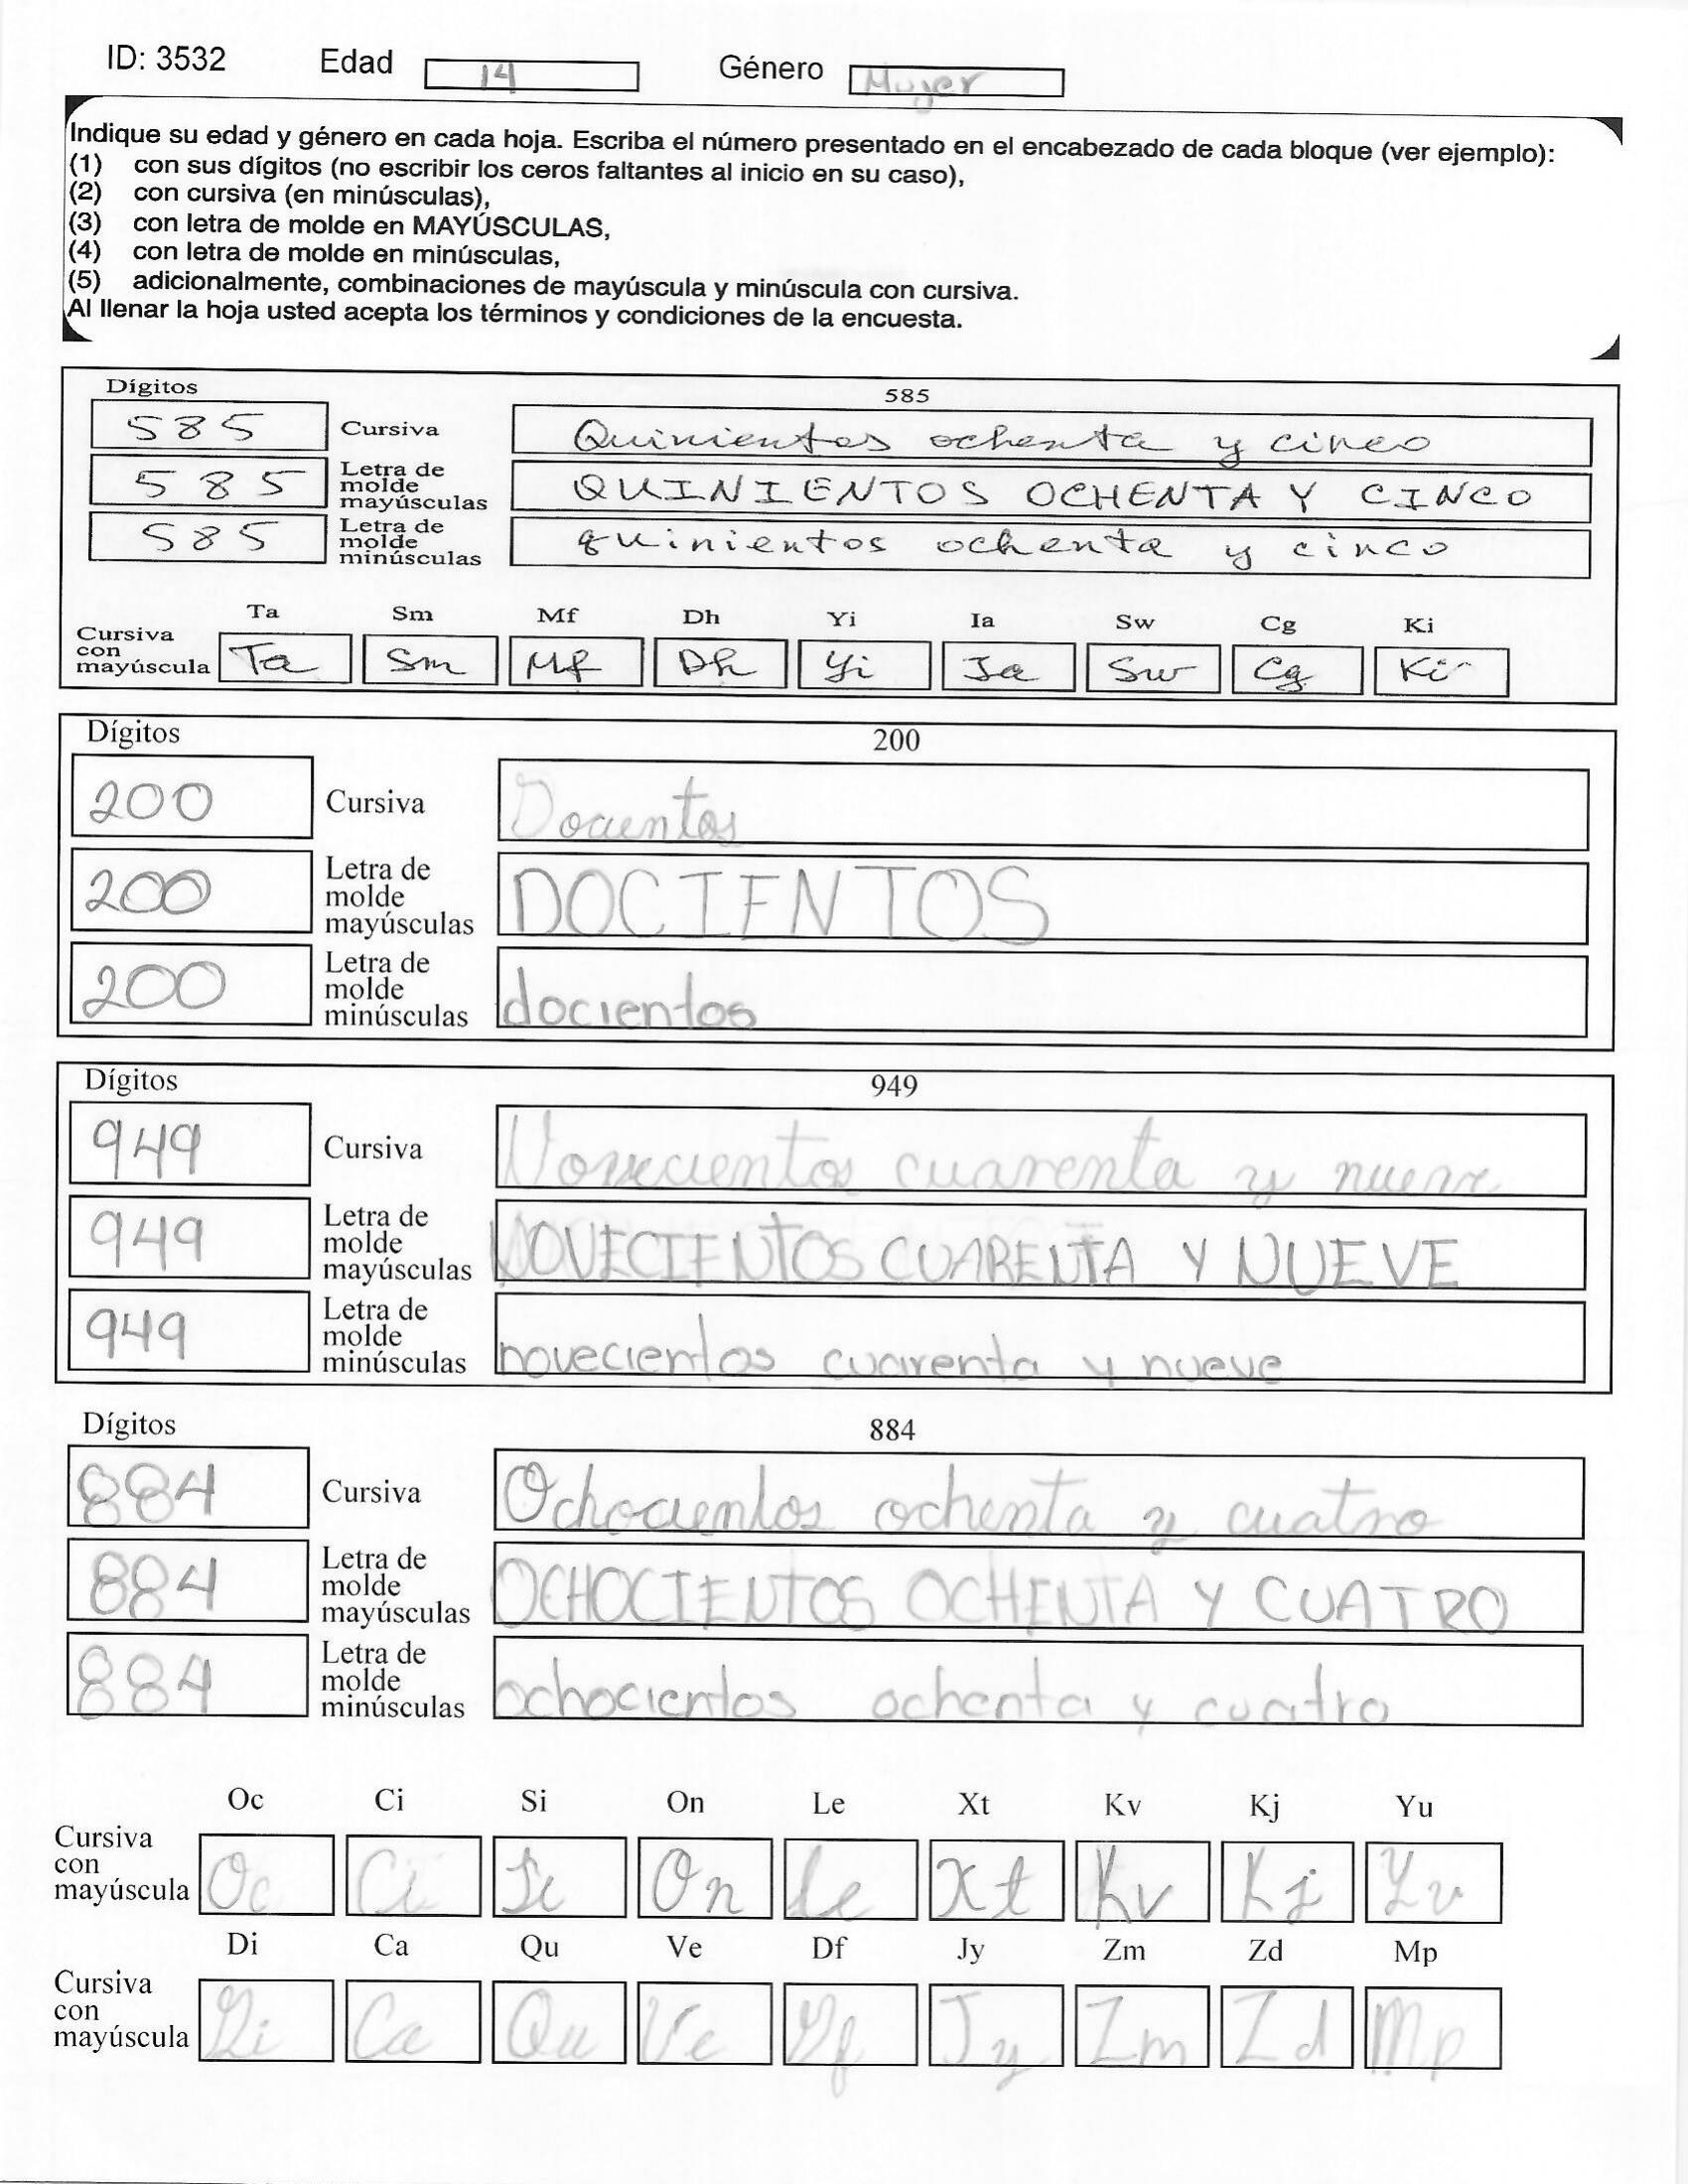 ID: 3532 Edad 14 Género Mujer
Indique su edad y género en cada hoja. Escriba el número presentado en el encabezado de cada bloque (ver ejemplo):
(1) con sus dígitos (no escribir los ceros faltantes al inicio en su caso),
(2) con cursiva (en minúsculas),
(3) con letra de molde en MAYÚSCULAS,
(4) con letra de molde en minúsculas,
(5) adicionalmente, combinaciones de mayúscula y minúscula con cursiva.
Al llenar la hoja usted acepta los términos y condiciones de la encuesta.
Dígitos 585
585 Cursiva Quinientos ochenta y cinco
585 Letra de molde mayúsculas QUINIENTOS OCHENTA Y CINCO
585 Letra de molde minúsculas quinientos ochenta y cinco
Ta Sm Mf Dh Yi Ia Sw Cg Ki
Cursiva con mayúscula Ta Sm Mf Dh Yi Ia Sw Cg Ki
Dígitos 200
200 Cursiva Docientos
200 Letra de molde mayúsculas DOCIENTOS
200 Letra de molde minúsculas docientos
Dígitos 949
949 Cursiva Novecientos cuarenta y nueve
949 Letra de molde mayúsculas NOVECIENTOS CUARENTA Y NUEVE
949 Letra de molde minúsculas novecientos cuarenta y nueve
Dígitos 884
884 Cursiva Ochocientos ochenta y cuatro
884 Letra de molde mayúsculas OCHOCIENTOS OCHENTA Y CUATRO
884 Letra de molde minúsculas ochocientos ochenta y cuatro
Oc Ci Si On Le Xt Kv Kj Yu
Cursiva con mayúscula Oc Ci Si On Le Xt Kv Kj Yu
Di Ca Qu Ve Df Jy Zm Zd Mp
Cursiva con mayúscula Di Ca Qu Ve Df Jy Zm Zd Mp